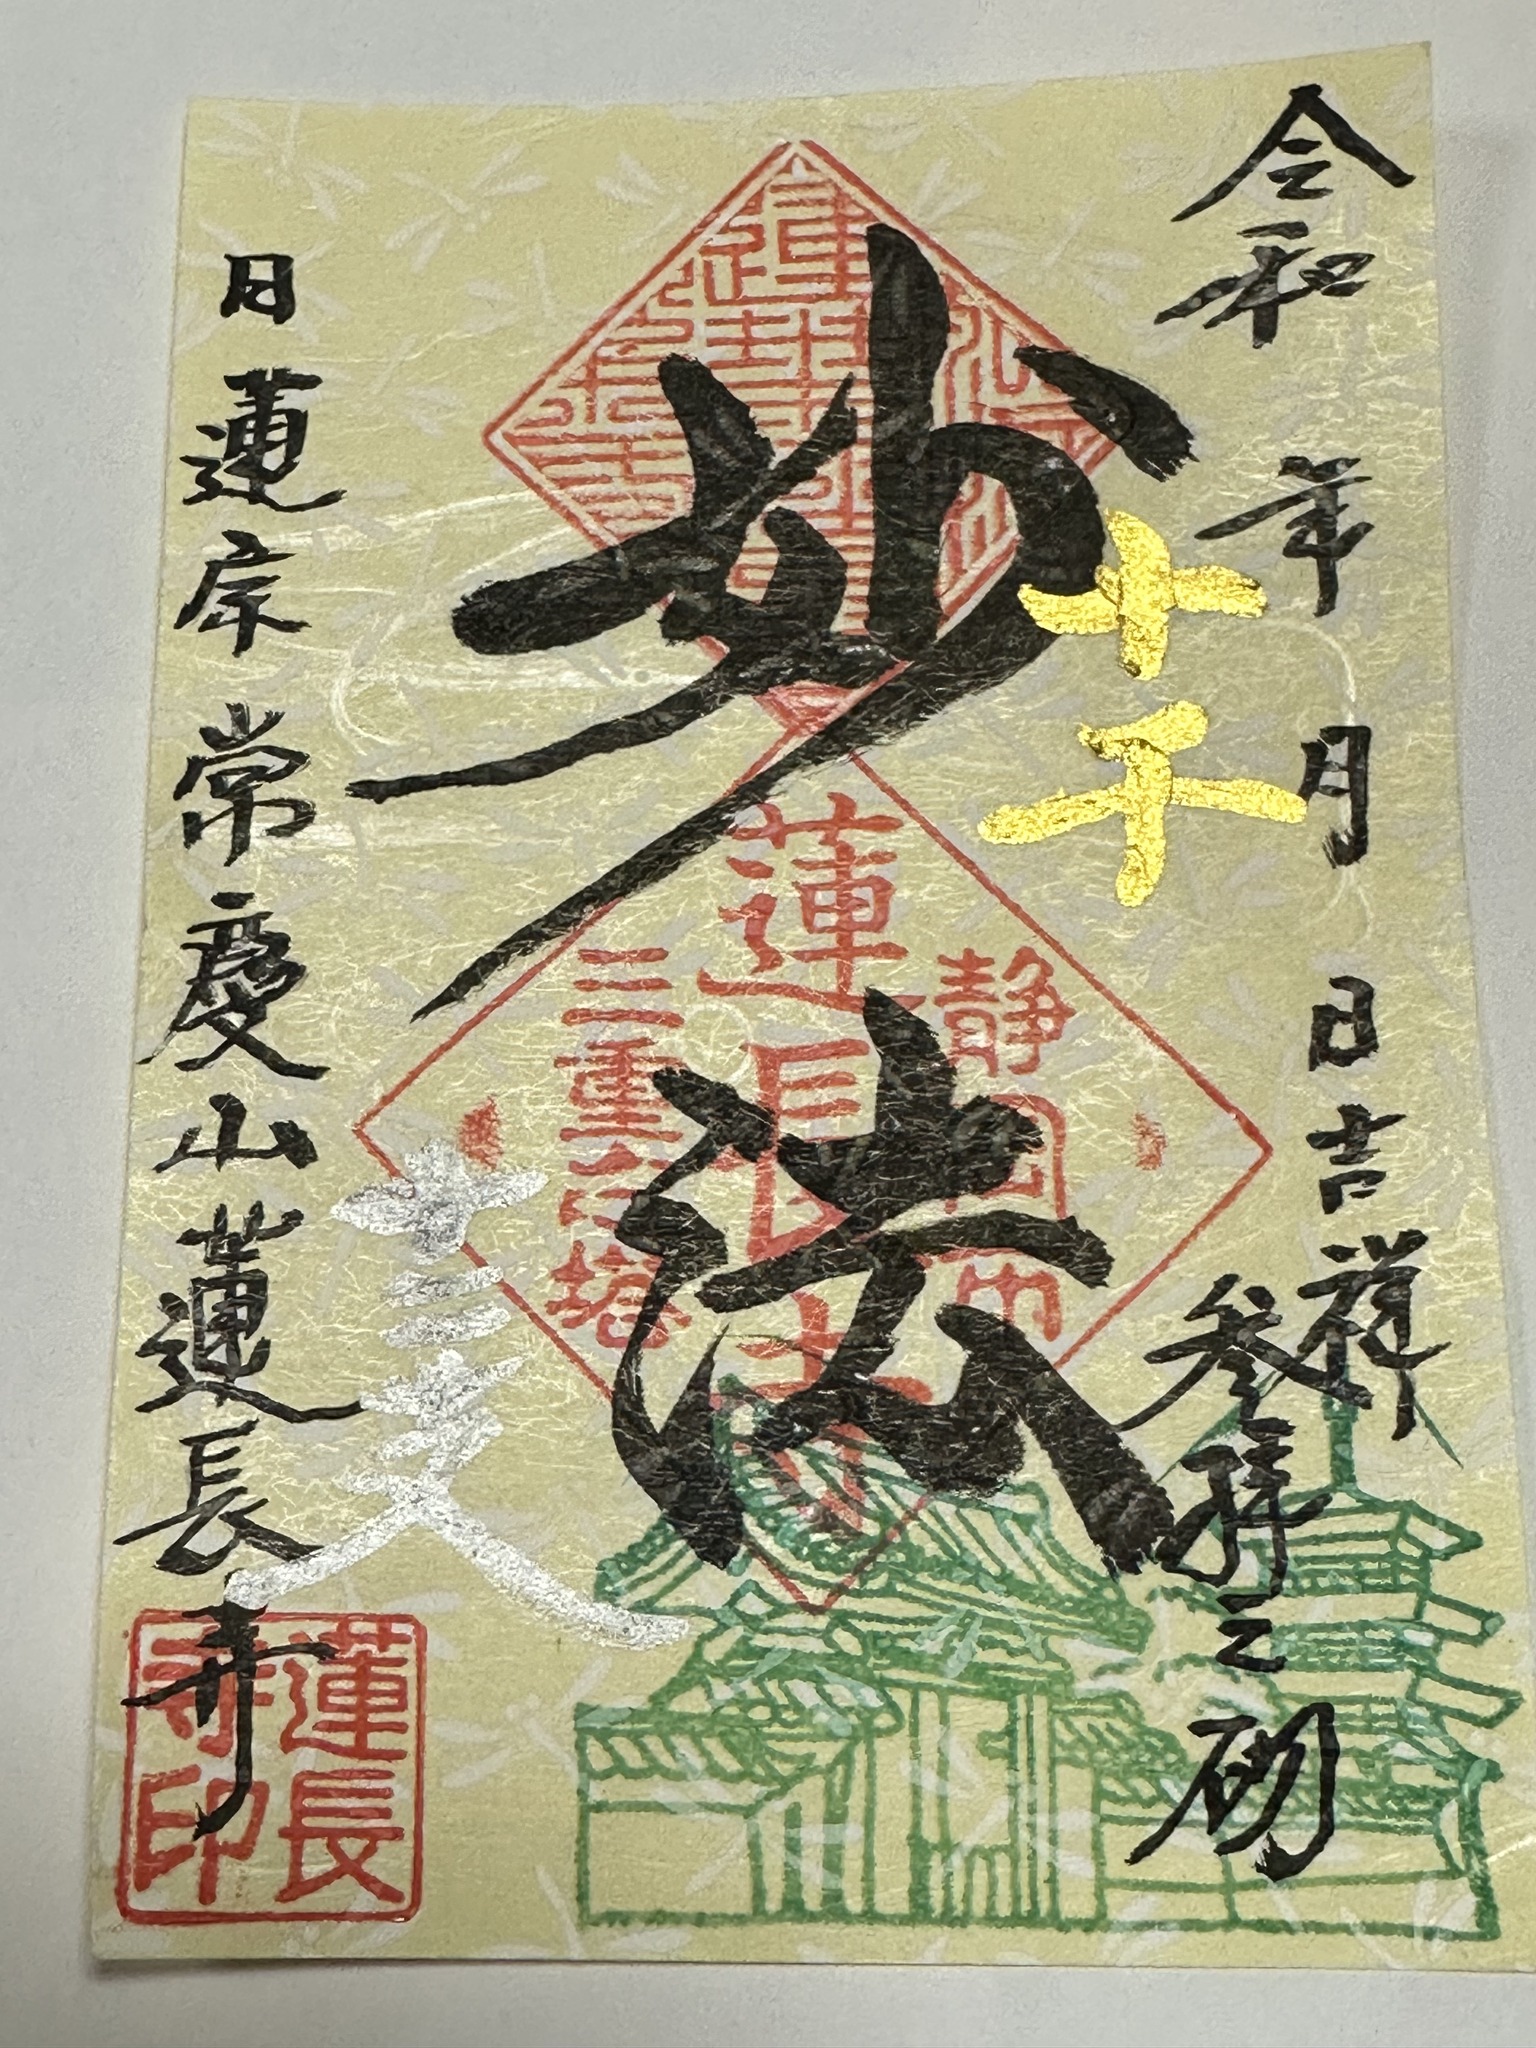 令和 年 月 日吉祥
参拝之砌
十干
妙法
蓮長寺
静岡市
三重六口塔
十二支
日蓮宗 常慶山蓮長寺
蓮長寺印